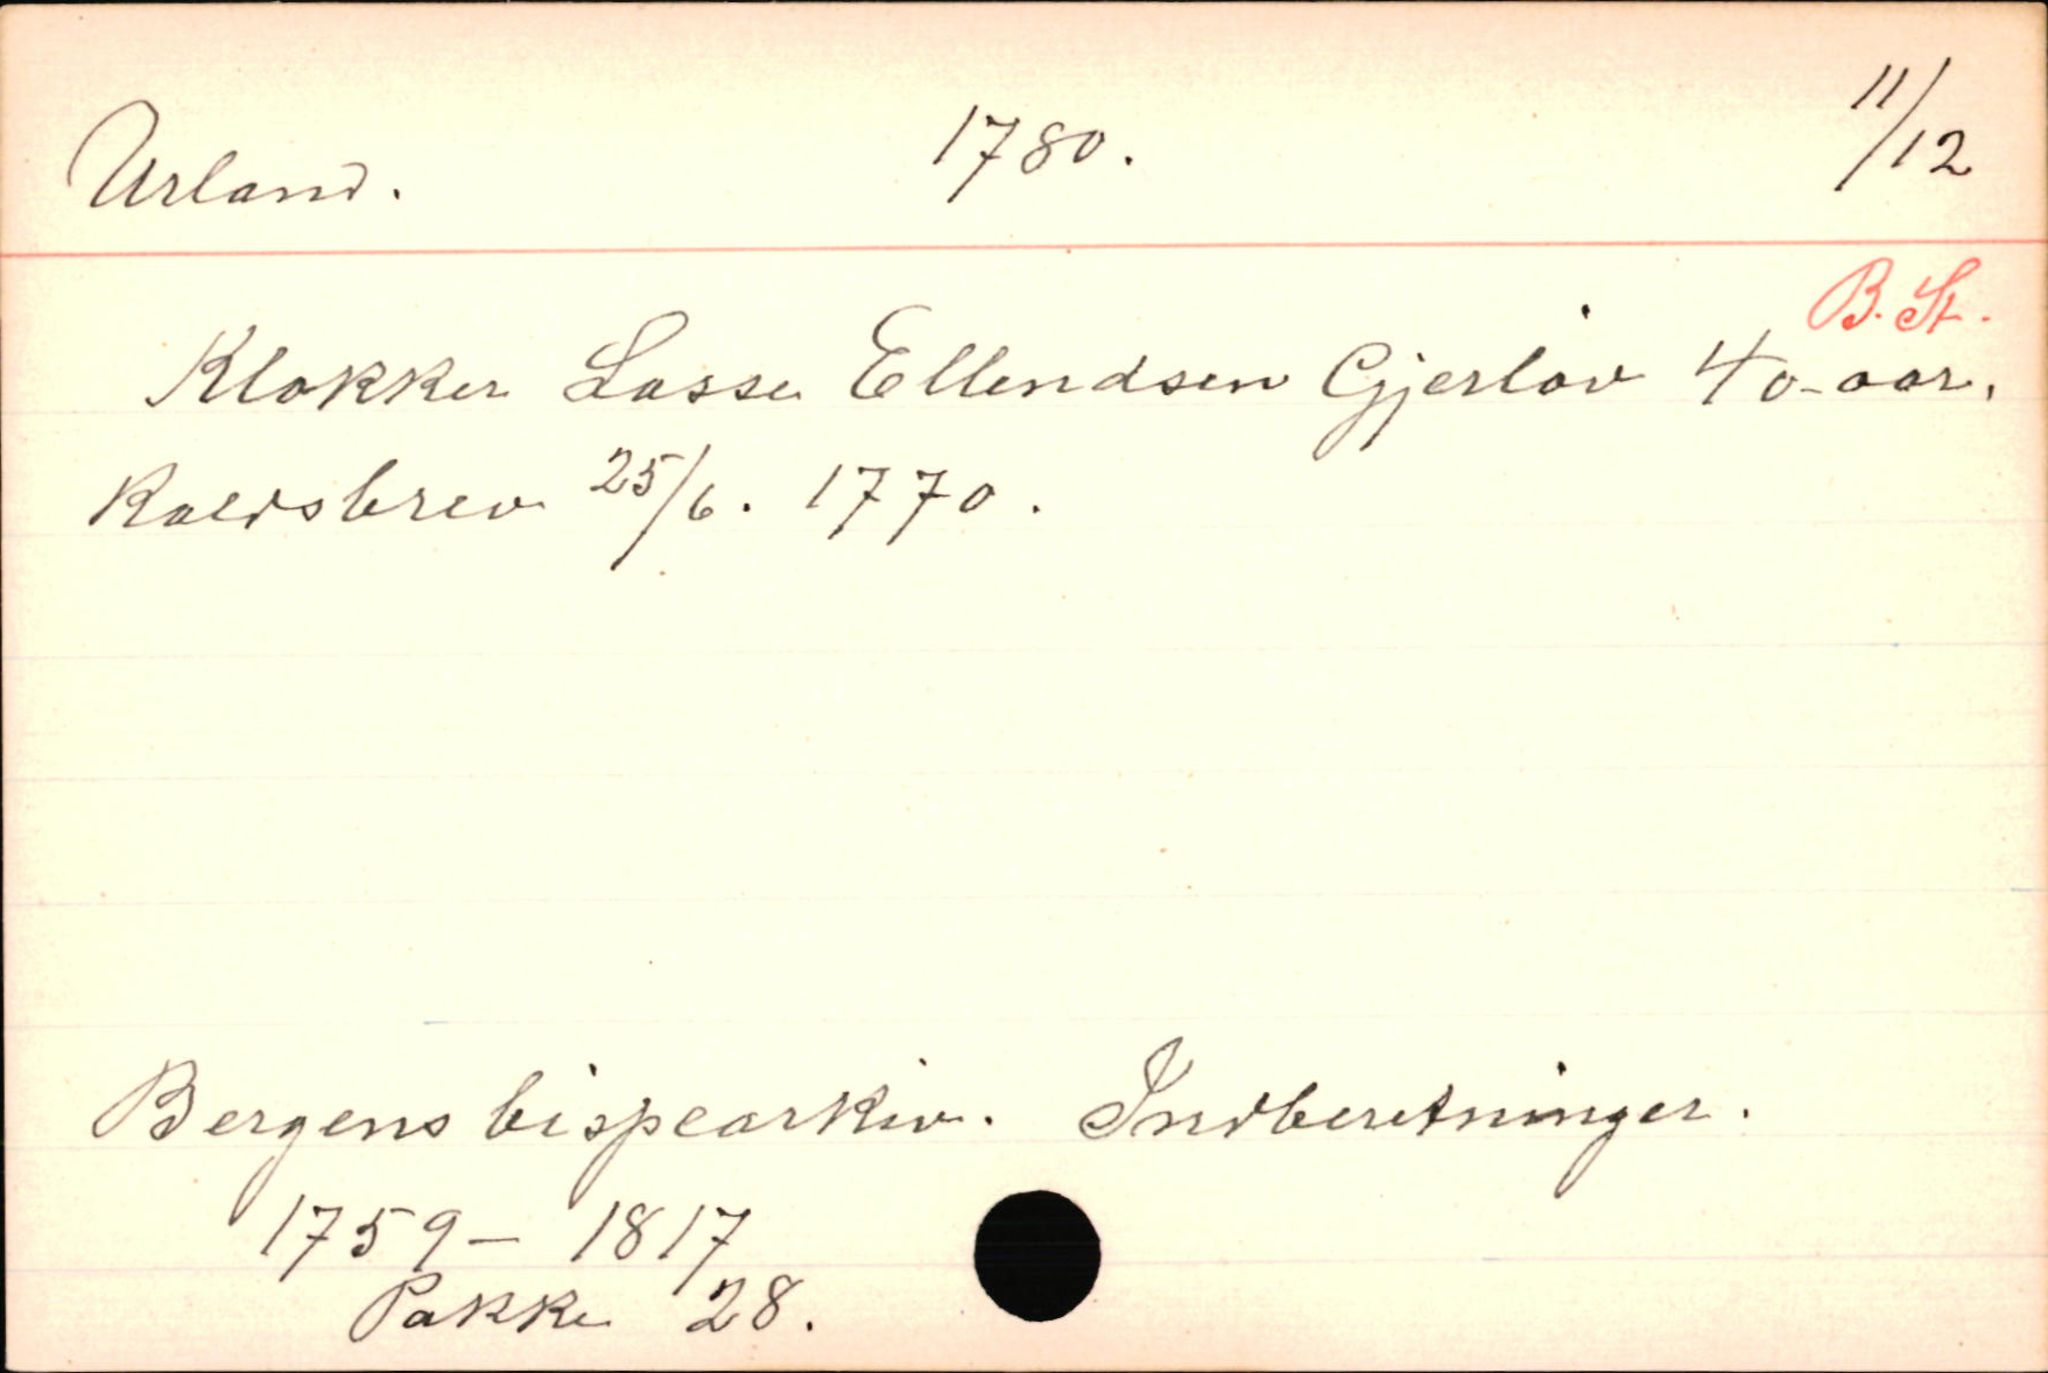 Urland. 1780. 11/12
B. St.
Klokker Lasse Ellendsen Gjerløv 40-aar.
Kaldsbrev 25/6. 1770.
Bergens bispearkiv. Indberetninger.
1759-1817
Pakke 28.